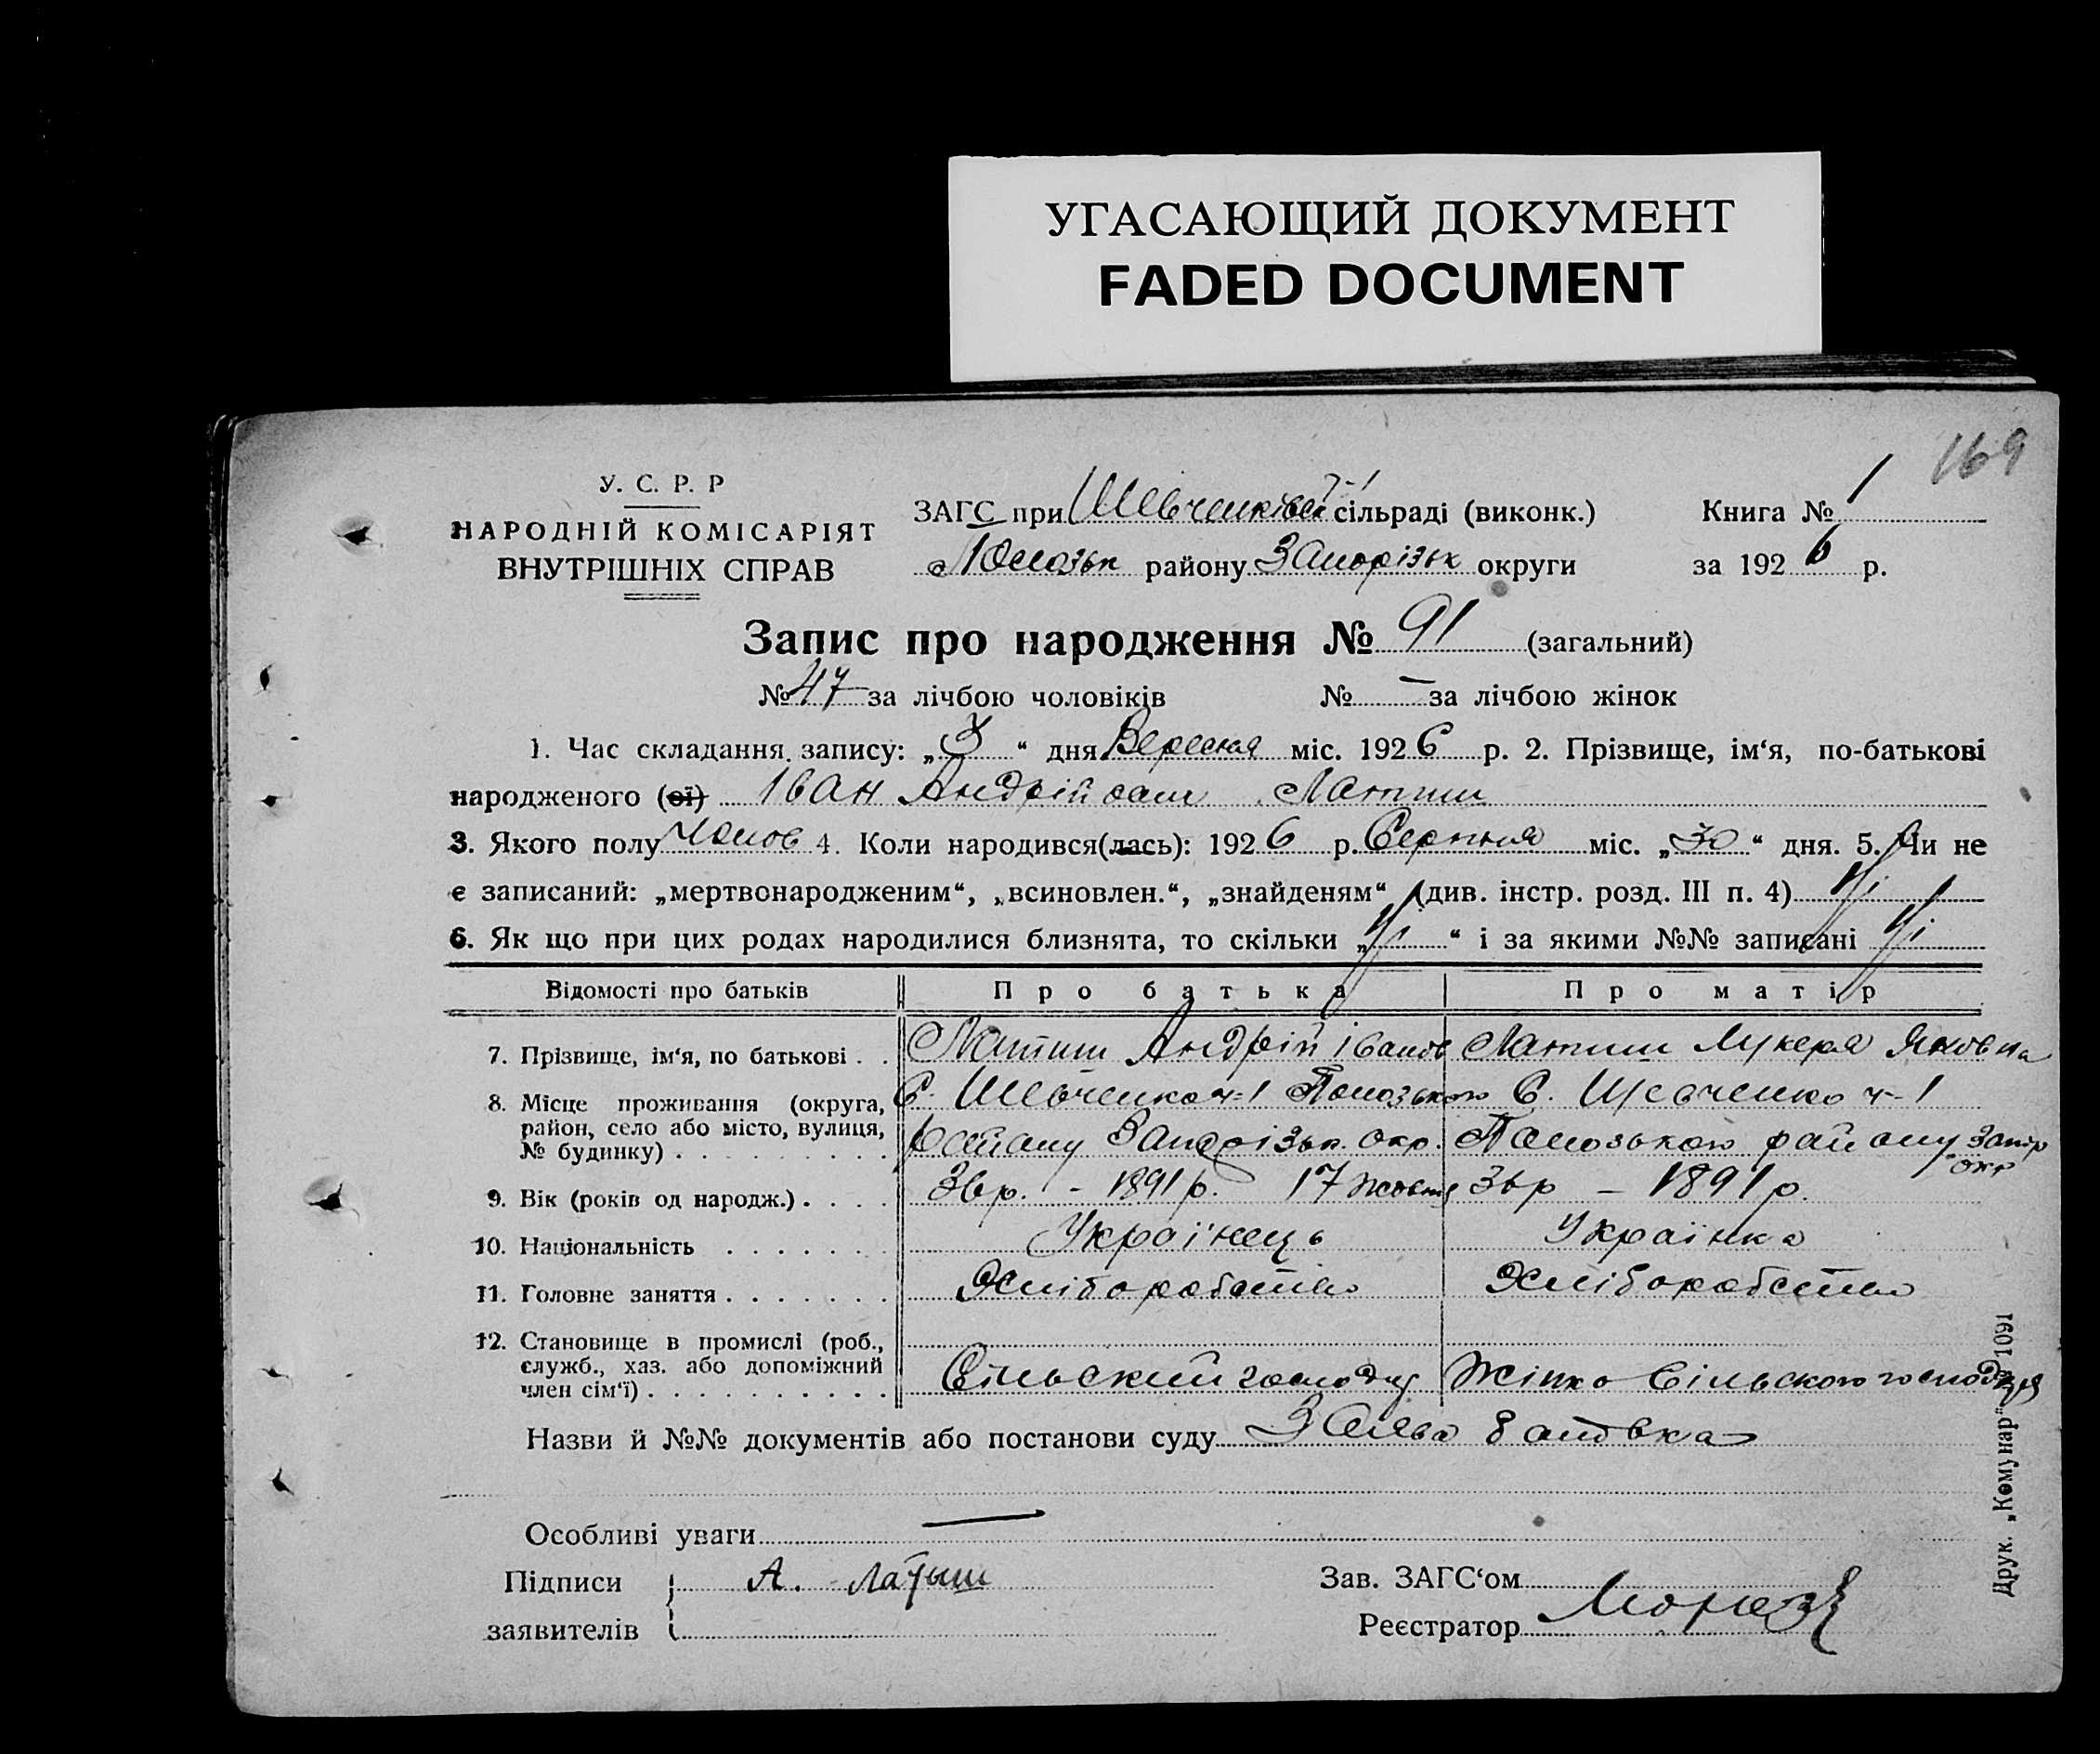 УГАСАЮЩИЙ ДОКУМЕНТ
FADED DOCUMENT
169
У. С. Р. Р
НАРОДНІЙ КОМІСАРІЯТ
ВНУТРІШНІХ СПРАВ
ЗАГС при Шевченківск ч-1 сільраді (виконк.)
району Запорізьк округи
Книга № 1
за 1926 р.
Запис про народження № 91 (загальний)
№ 47 за лічбою чоловіків № — за лічбою жінок
1. Час складання запису: „3“ дня Вересня міс. 1926 р. 2. Прізвище, ім‘я, по-батькові
народженого (ої) Іван Андрійович Латиш
3. Якого полу Чолов 4. Коли народився(лась): 1926 р. Серпня міс. „30“ дня. 5. Чи не
є записаний: „мертвонародженим“, „всиновлен.“, „знайденям“ (див. інстр. розд. III п. 4) Ні
6. Як що при цих родах народилися близнята, то скільки „Ні“ і за якими №№ записані Ні
Відомості про батьків Про батька Про матір
7. Прізвище, ім‘я, по батькові . . Латиш Андрій Іванов Латиш Лукеря Яковна
8. Місце проживання (округа, С. Шевченко ч-1 С. Шевченко ч-1
район, село або місто, вулиця,
№ будинку) . . . . . . . . . Району Запорізьк. окр. району Запор
окр
9. Вік (років од народж.) . . . . 36р. - 1891р. 17 Жовтня 36р – 1891р.
10. Національність . . . . . . . Українець Українка
11. Головне заняття . . . . . . . Хліборобство Хліборобство
12. Становище в промислі (роб.,
служб., хаз. або допоміжний
член сім‘ї) . . . . . . . . . . Сільский господар Жінка Сільского господаря
Назви й №№ документів або постанови суду Заява батька
Особливі уваги —
Підписи А. Латыш
заявителів
Зав. ЗАГС‘ом
Реєстратор
Друк. „Комунар“ 1091